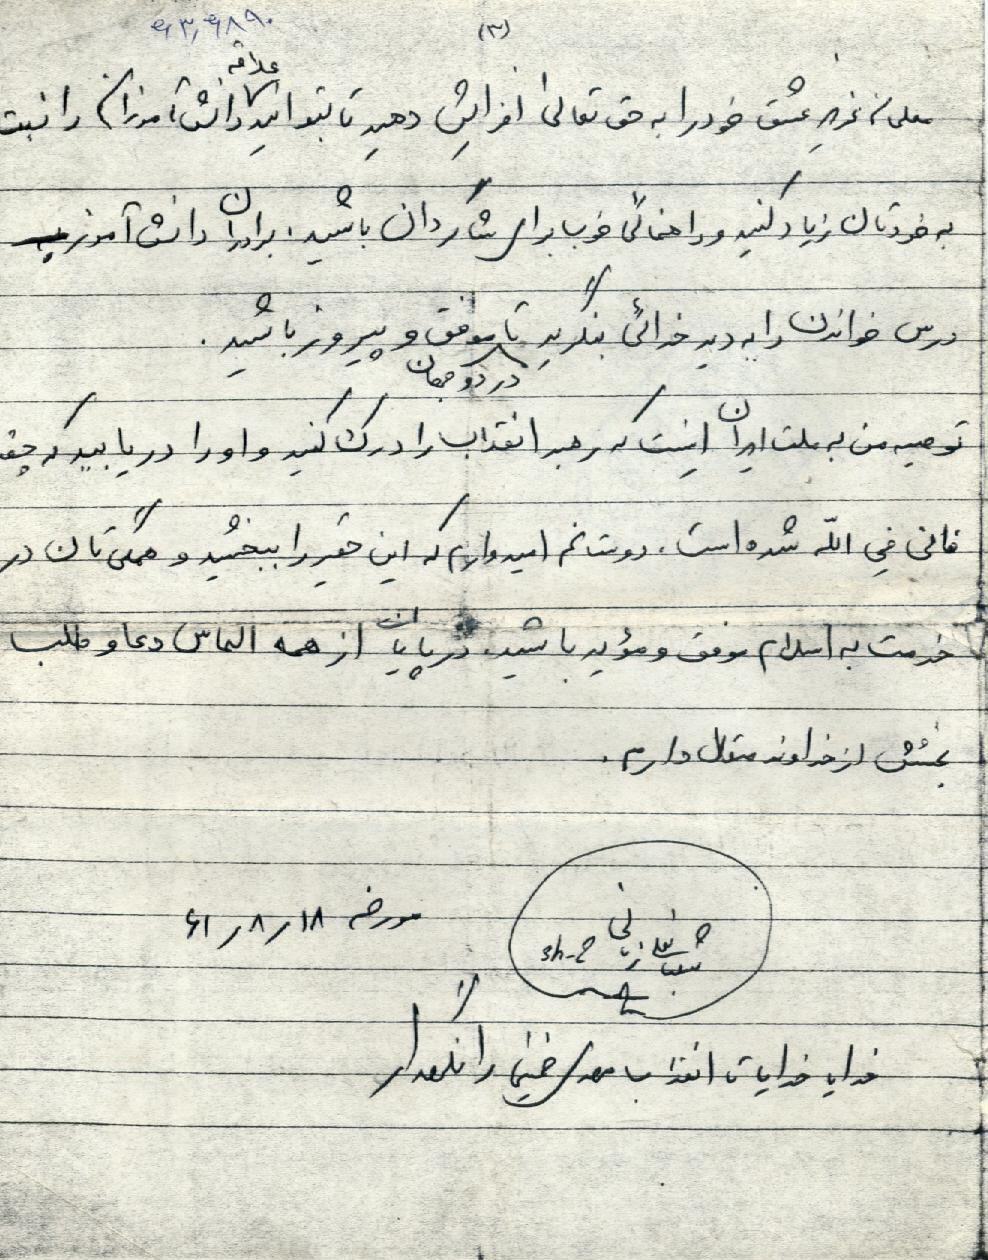 (۳)
علاقه
معلمان عزیز عشق خود را به حق تعالی افزایش دهید تا بتوانید دانش آموزان را نسبت
به خودتان زیاد کنید و راهنمائی خوب برای شاگردان باشید. برادران دانش آموز
درس خواندن را به دید خدائی بنگرید تا موفق و پیروز باشید.
در دو جهان
توصیه من به ملت ایران اینست که رهبر انقلاب را درک کنید و او را دریابید که چقد
فانی فی الله شده است. دوستانم امیدوارم که این حقیر را ببخشید و همگی تان در
خدمت به اسلام موفق و مؤید باشید. در پایان از همه التماس دعا و طلب
بخشش از خداوند متعال دارم.
مورخه ۶۱/۸/۱۸
خدایا خدایا تا انقلاب مهدی خمینی را نگهدار